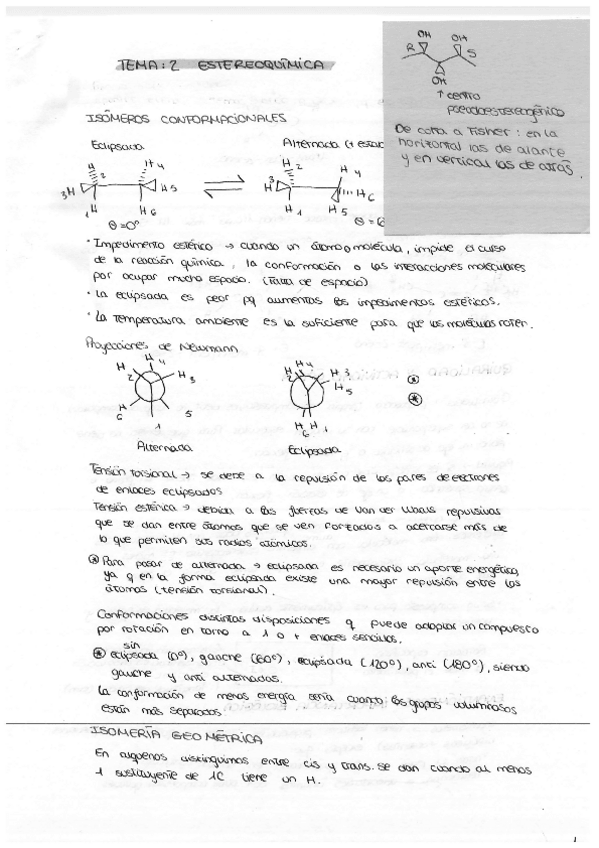 TEMA: 2 ESTEREOQUÍMICA
OH
OH
R
S
OH
↑ centro
pseudoestereogénico
De cara a Fisher: en la
horizontal los de alante
y en vertical los de atrás
ISÓMEROS CONFORMACIONALES
Eclipsada
Alternada (+ estab
H 2
H 4
3H
H 5
1H
H 6
θ = 0º
H 2
H 4
H 3
H 6
H 1
H 5
θ = 6
· Impedimento estérico → cuando un átomo o molécula, impide el curso
de la reacción química, la conformación o las interacciones moleculares
por ocupar mucho espacio. (Falta de espacio)
· La eclipsada es peor pq aumentas los impedimentos estéricos.
· La temperatura ambiente es la suficiente para que las moléculas roten.
Proyecciones de Newmann
H 2
H 4
H 3
H 6
5
1
Alternada
H 2
H 4
H 3
H 5
H 6
H 1
Eclipsada
Tensión torsional → se debe a la repulsión de los pares de electrones
de enlaces eclipsados
Tensión estérica → debida a las fuerzas de Van der Waals repulsivas
que se dan entre átomos que se ven forzados a acercarse más de
lo que permiten sus radios atómicos.
* Para pasar de alternada → eclipsada es necesario un aporte energético,
ya q en la forma eclipsada existe una mayor repulsión entre los
átomos (tensión torsional).
Conformaciones distintas disposiciones q puede adoptar un compuesto
por rotación en torno a 1 o + enlaces sencillos.
sin
* eclipsada (0º), gauche (60º), eclipsada (120º), anti (180º), siendo
gauche y anti alternadas.
La conformación de menos energía sería cuando los grupos voluminosos
están más separados.
ISOMERÍA GEOMÉTRICA
En alquenos distinguimos entre cis y trans. se dan cuando al menos
1 sustituyente de 1C tiene un H.
1